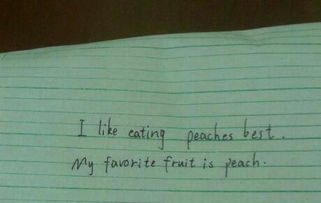 I like eating peaches best.
My favorite fruit is peach.